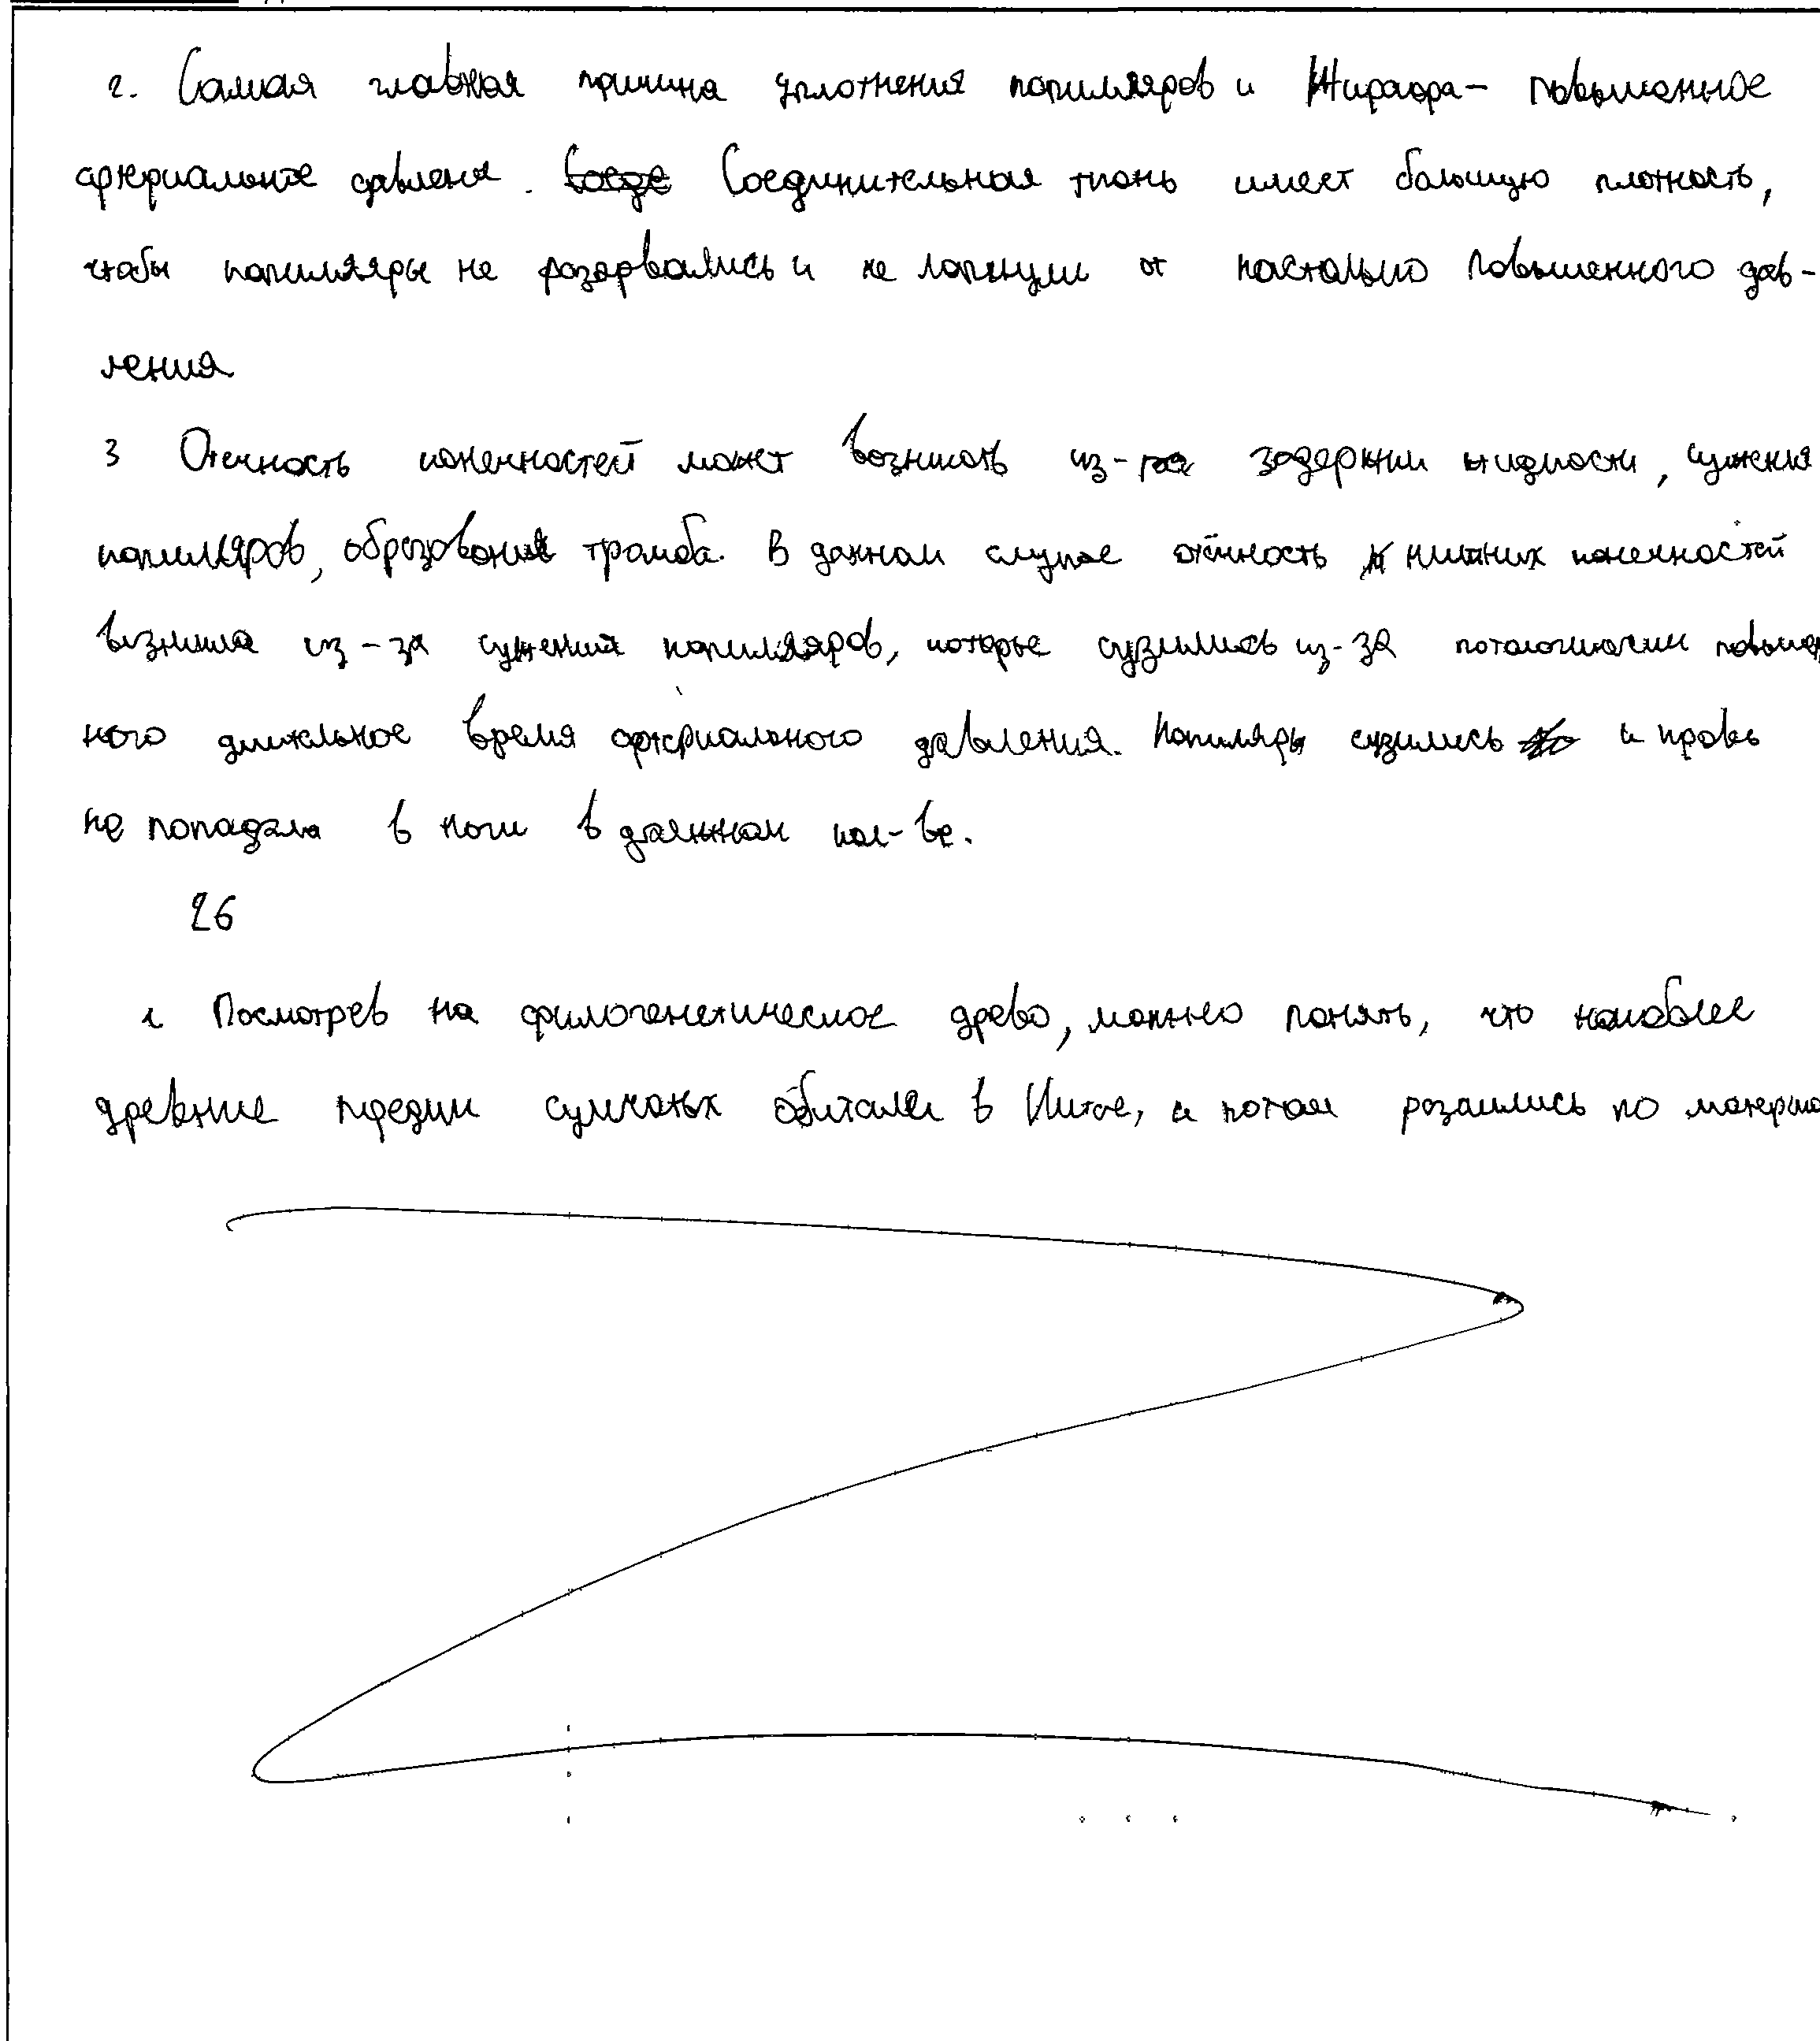 2. Самая главная причина уплотнения капилляров и Жирафа - повышенное
артериальное давление. Соединительная ткань имеет большую плотность,
чтобы капилляры не разорвались и не лопнули от настолько повышенного дав-
ления
3 Отечность конечностей может возникать из-за задержки жидкости, сужения
капилляров, образования тромба. В данном случае отёчность нижних конечностей
возникла из-за сужения капилляров, которые сузились из-за патологически повышен
ного длительное время артериального давления. Капиляры сузились и кровь
не попадала в ноги в должном кол-ве.
26
1 Посмотрев на филогенетическое древо, можно понять, что наиболее
древние предки сумчатых обитали в Китае, а потом разошлись по материка